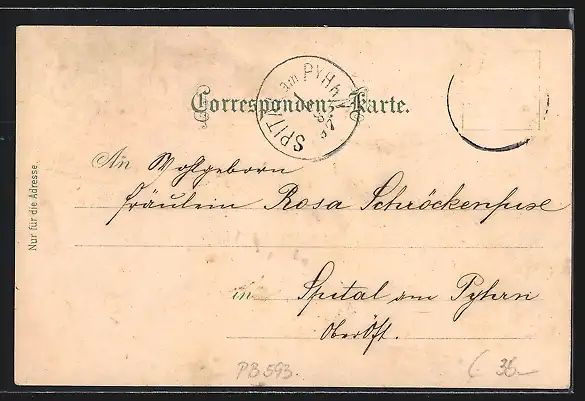 SPITAL am PYHRN
97
Correspondenz-Karte.
An Wohlgeborn
Fräulein Rosa Schröckenfuxe
in Spital am Pyhrn
OberÖst.
Nur für die Adresse.
PB593.
36-